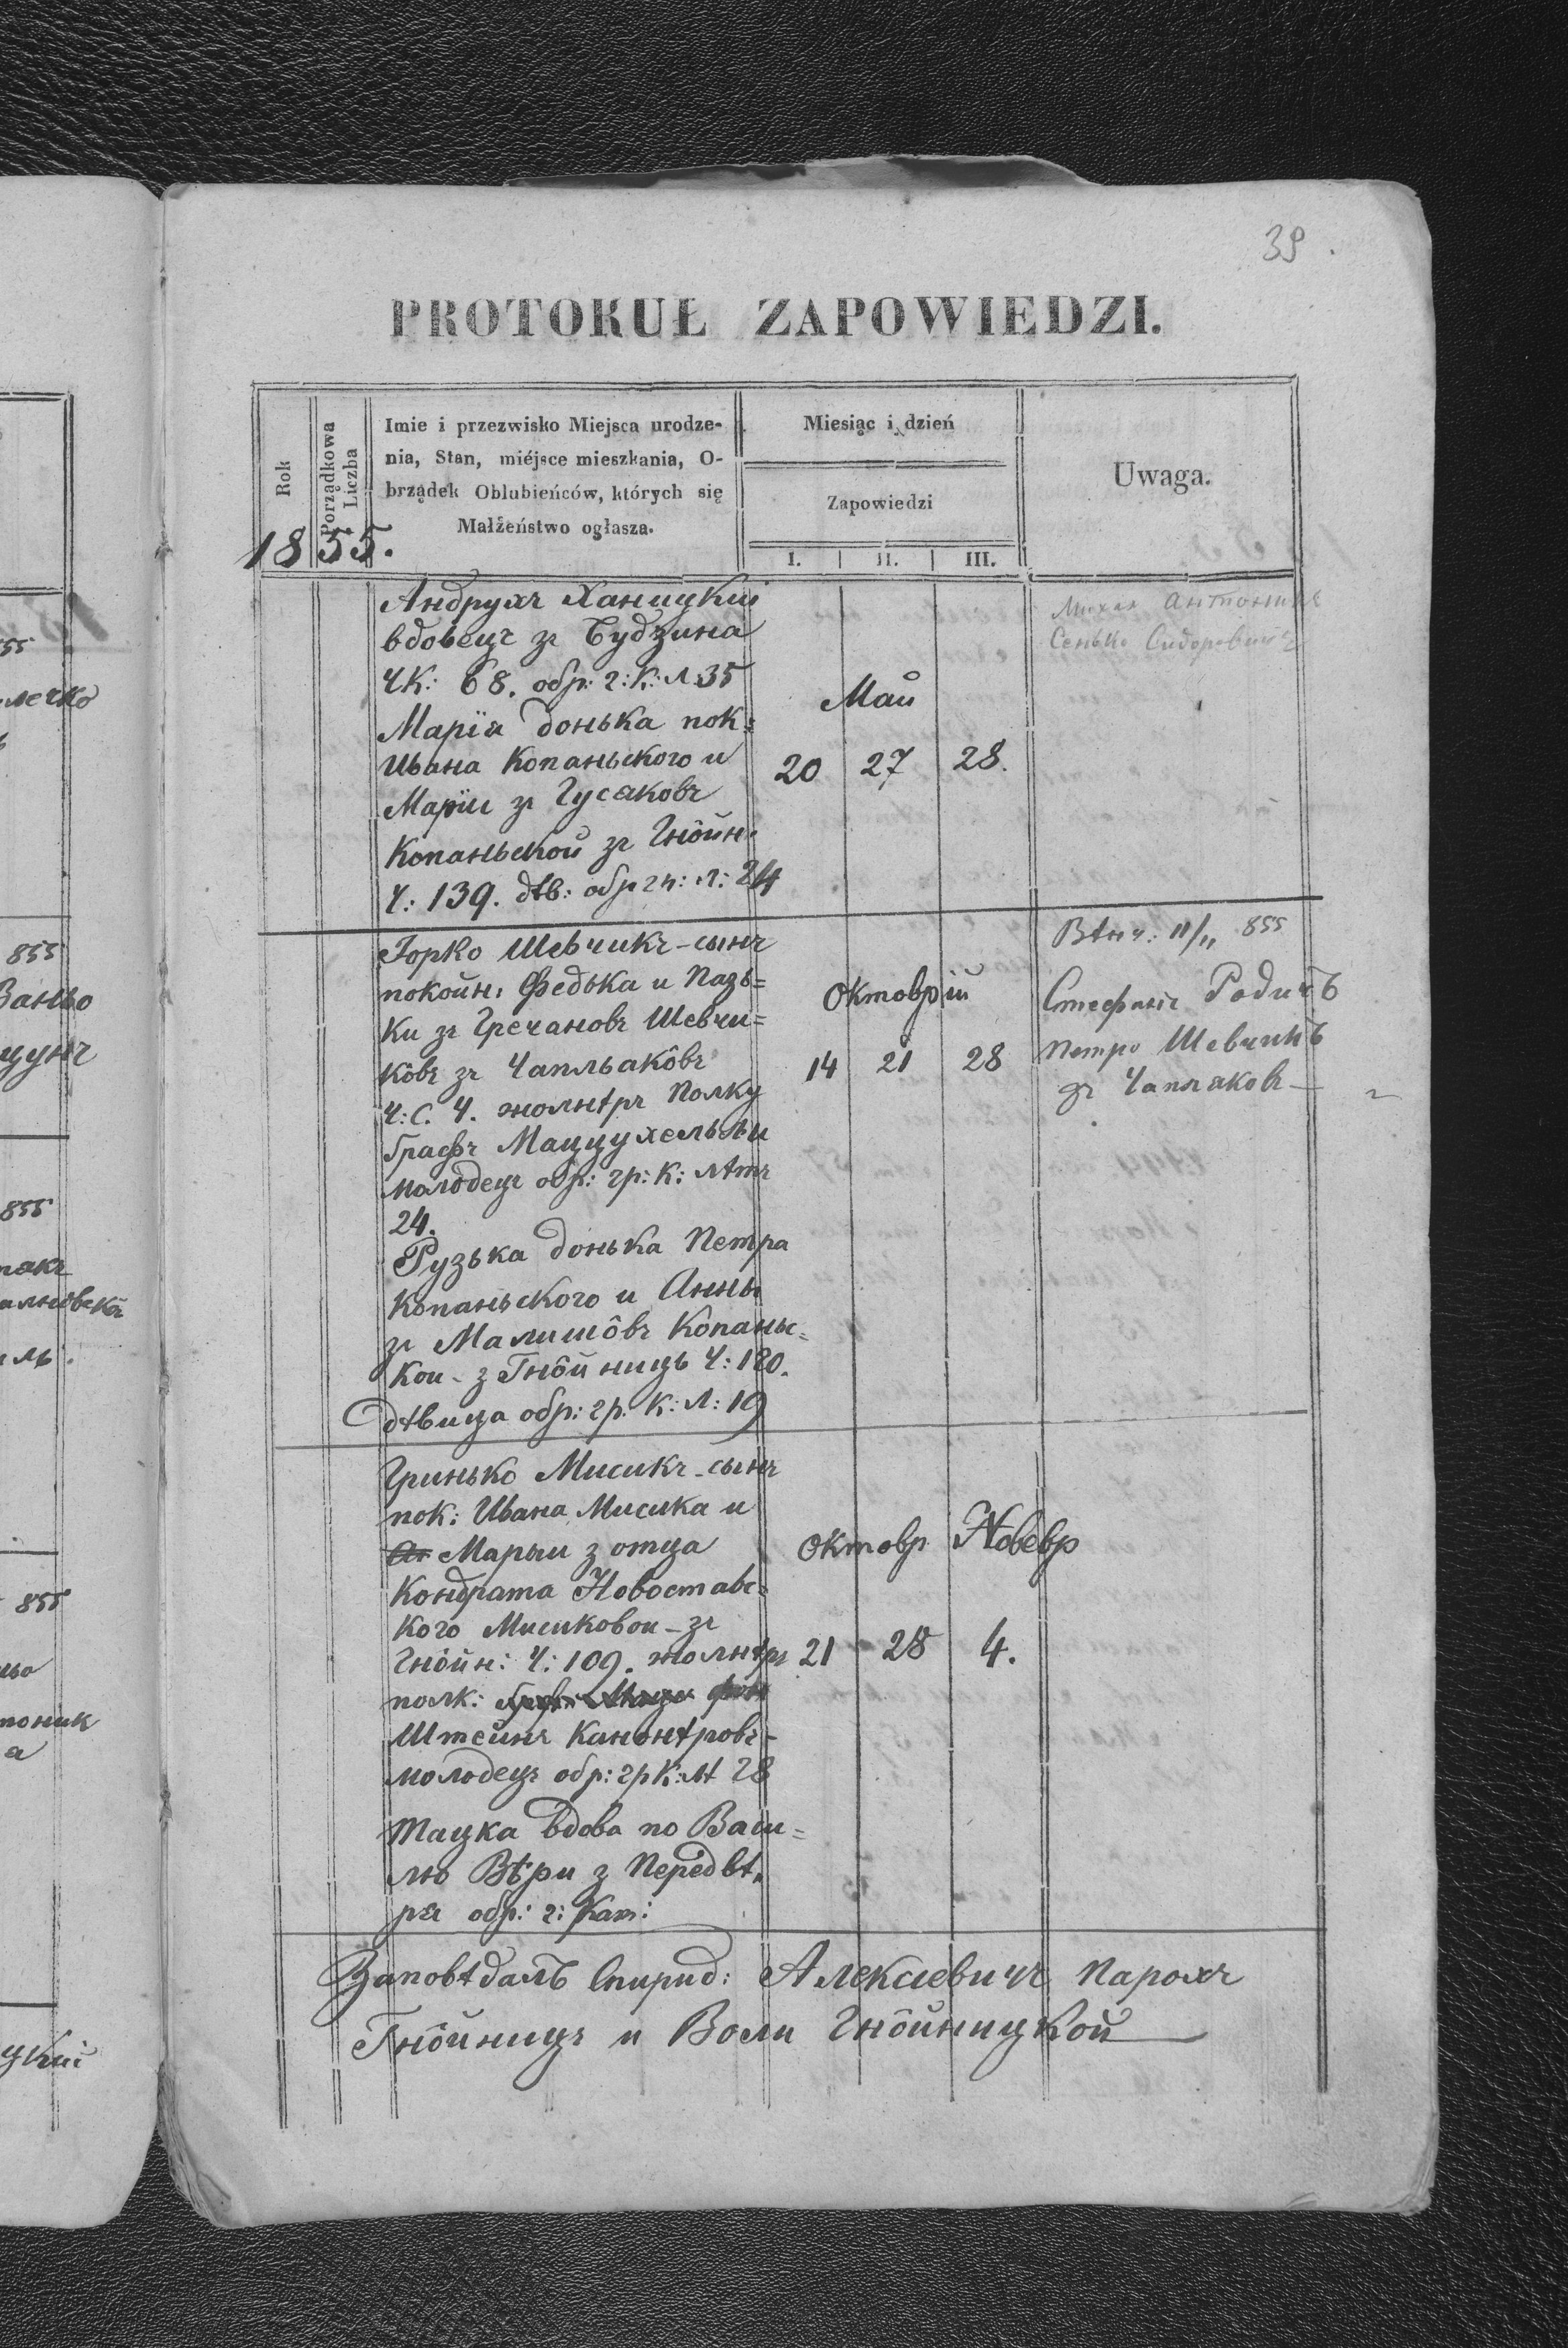 39
PROTOKUŁ ZAPOWIEDZI.
Rok
Porządkowa Liczba
Imie i przezwisko Miejsca urodze-
nia, Stan, miéjsce mieszkania, O-
brządek Oblubieńców, których się
Małżeństwo ogłasza.
Miesiąc i dzień
Zapowiedzi
I. II. III.
Uwaga.
1855.
Андрухъ Ханицкій
вдовецъ зъ Будзина
ЧК: 68. обр: г: К: Л 35
Марія донька пок:
Ивана Копаньского и
Маріи зъ Гусаковъ
Копаньской зъ Гнôйн:
Ч: 139. дѣв: обр гк: л: 24
Май
20 27 28.
Антоник
Сенько Сидоровичъ
Горко Шевчикъ - сынъ
покойн: Федька и Пазь=
ки зъ Гречановъ Шевчи=
кôвъ зъ Чапльакôвъ
Ч: С. 4. жолнѣръ Полку
Графъ Маццухельѣи
молодецъ обр: гр: К: лѣтъ
24.
Рузька донька Петра
Копаньского и Анны
зъ Малишôвъ Копаньс=
кои - з Гнôйниць Ч: 120.
дѣвица обр: гр: К: Л: 19
Октоврій
14 21 28
Вѣнч: 11/11 855
Стефанъ Родичъ
Петро Шевчикъ
зъ Чаплаковъ —
Гринько Мисикъ - сынъ
пок: Ивана Мисика и
Марыи з отца
Кондрата Новоставс=
кого Мисиковои - зъ
Гнôйн: Ч: 109. жолнѣръ
полк: фон
Штейнъ Канонѣровъ -
молодецъ обр: гр К: лѣ 28
Тацка вдова по Васи=
лю Вѣри з Передвѣ,
ра обр: г: Кат:
Октовр Новевр
21 28 4.
Заповѣдалъ Спирид: Алексіевичъ Парохъ
Гнôйницъ и Воли Гнôйницкой